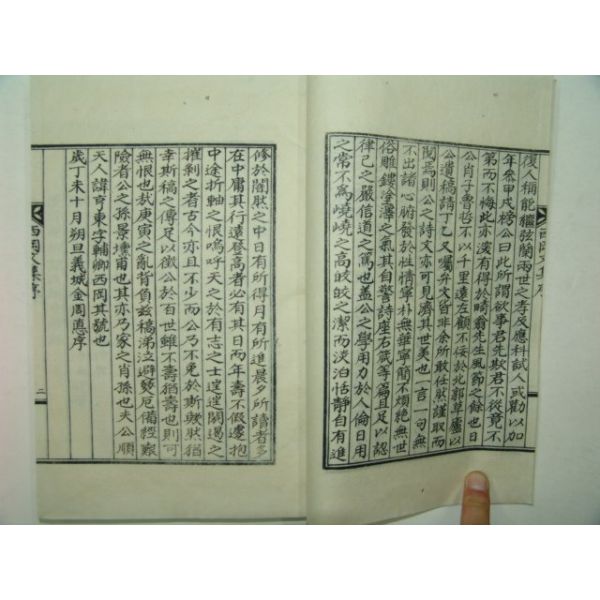 復人稱能繼弦闡兩世之孝友應科試人或勸以加
年參甲戌榜公曰此所謂欲事君先欺君不從竟不
第而不悔此亦深有得於畸翁先生風節之餘也日
公肖子魯哲不以千里遠左顧不佞於北郭草廬以
公遺稿請丁乙又囑弁文皆非余所敢任肰謹取而
閱焉則公之詩文亦可見濟其世美也一言一句無
不出諸心腑發於性情寧朴無華寧簡不煩絶無世
俗雕鏤塗澤之氣其自警詩座右箴等篇且足以認
律己之嚴信道之篤也盖公之學用力於人倫日用
之常不爲嶢嶢之高皎皎之潔而淡泊恬靜自有進
西岡文集序
修於闇肰之中日有所得月有所進晨夕所讀者多
在中庸其行遠登高者必有其日而年壽不假遽抱
中途折軸之恨嗚呼天之於有志之士邅邅閼遏之
摧剝之者古今亦且不少而公乃不免於斯歟肰猶
幸斯稿之傳足以徵公於百世雖不壽猶壽也則可
無恨也哉庚寅之亂背負玆稿涕泣避難厄備經艱
險者公之孫景壎甫也其亦乃家之肖孫也夫公順
天人諱亨東字輔卿西岡其號也
歲丁未十月朔旦義城金周悳序
西岡文集序
二